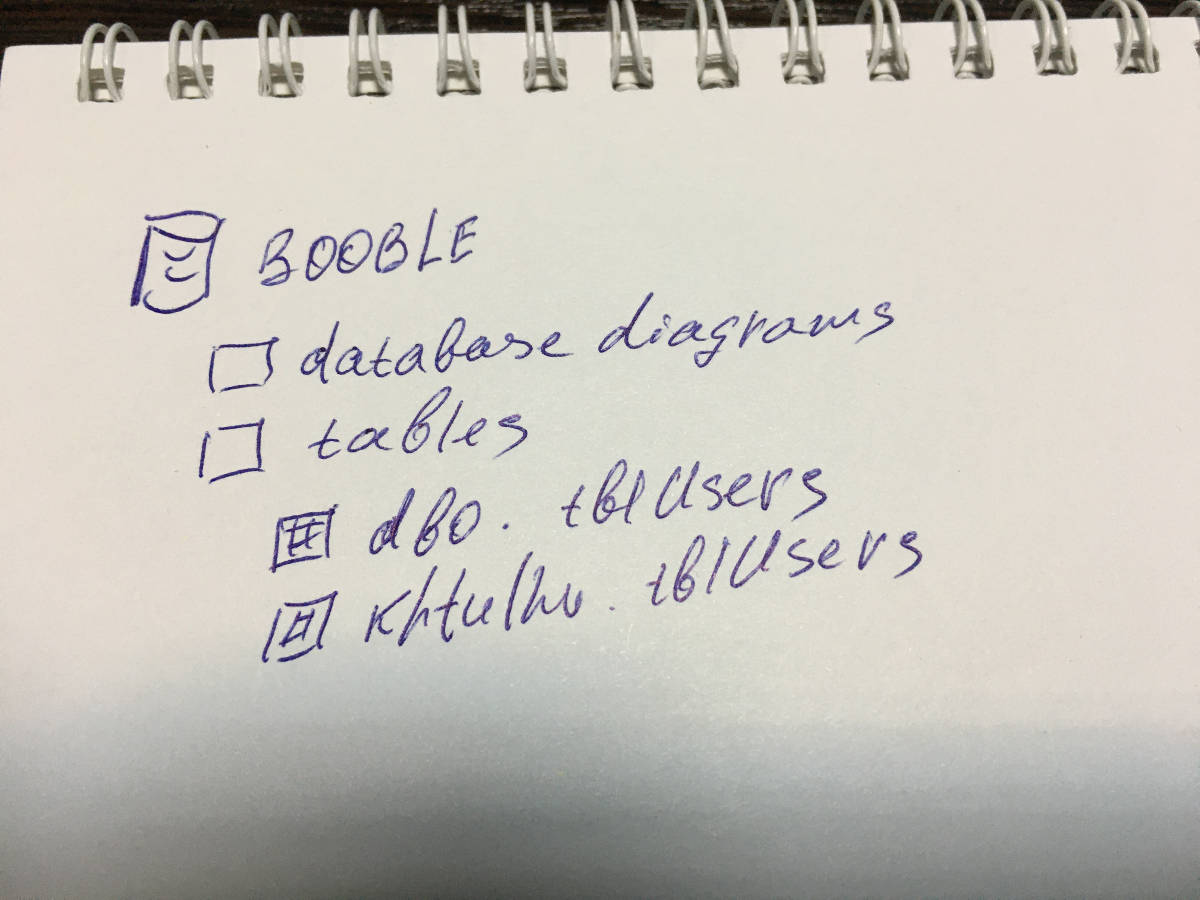 BOOBLE
database diagrams
tables
dbo. tblUsers
Khtulhu. tblUsers